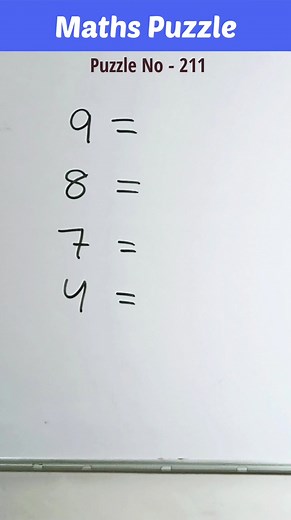 Maths Puzzle
Puzzle No - 211
9 =
8 =
7 =
4 =